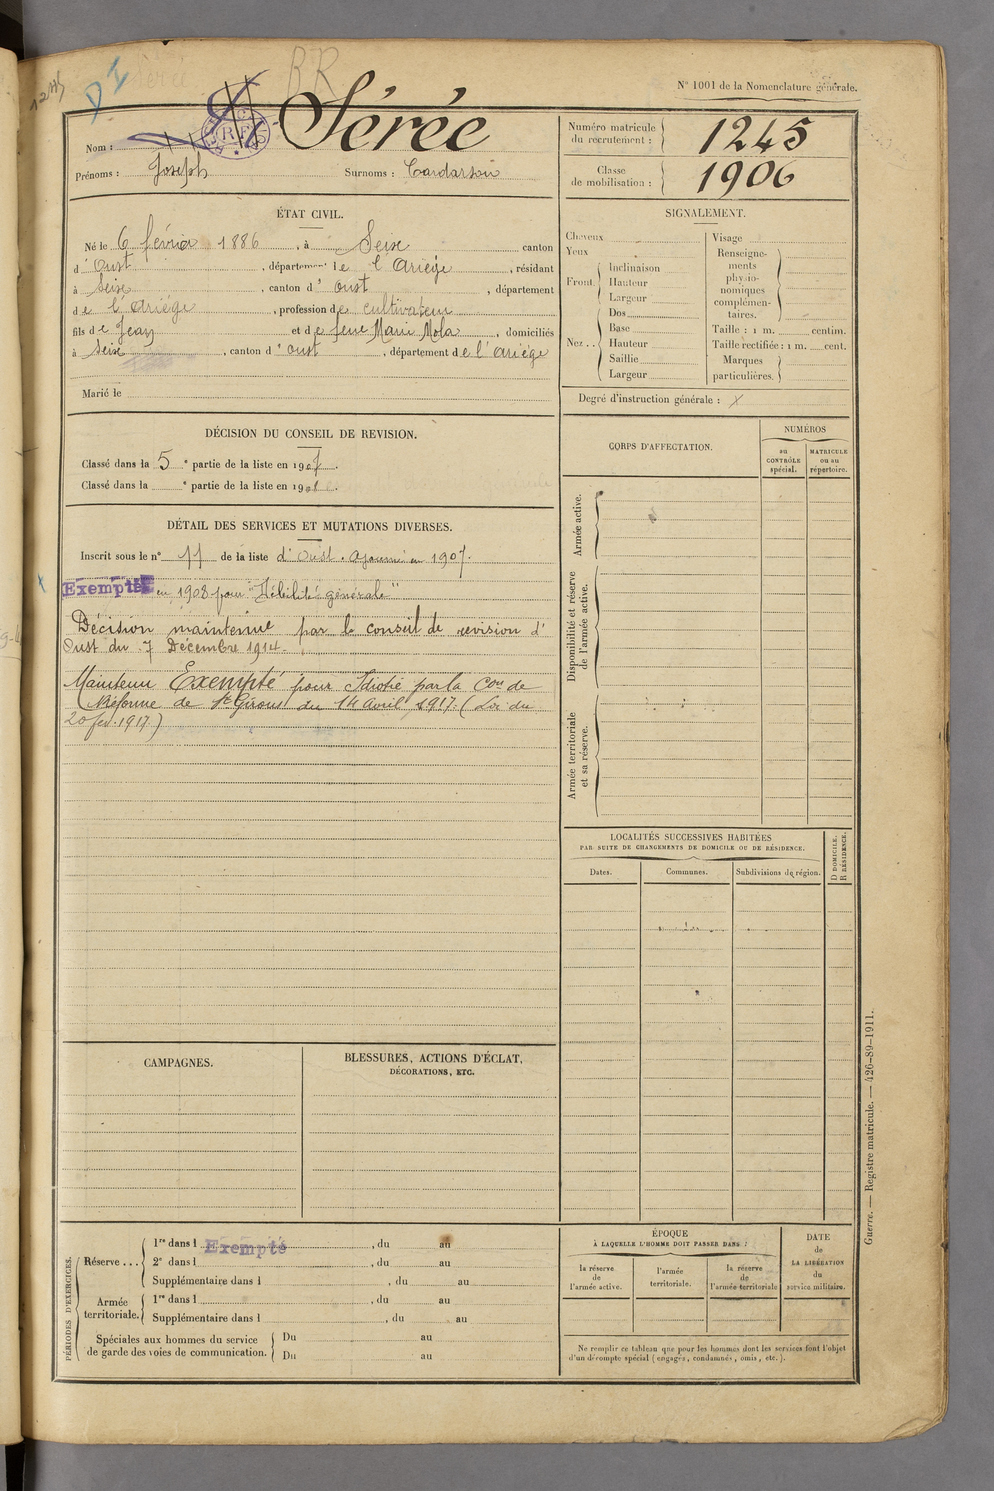 BR
N° 1001 de la Nomenclature générale.
Nom : Sérée
Prénoms : Joseph Surnoms : Cardarson
Numéro matricule du recrutement : 1245
Classe de mobilisation : 1906
ÉTAT CIVIL.
Né le 6 février 1886, à Seix canton
d'Oust, département de l'Ariège, résidant
à Seix, canton d'oust, département
de l'Ariège, profession de cultivateur
fils de Jean et de feue Marie Mola, domiciliés
à Seix, canton d'oust, département de l'Ariège
Marié le
SIGNALEMENT.
Cheveux
Yeux
Front
Inclinaison
Hauteur
Largeur
Nez
Dos
Base
Hauteur
Saillie
Largeur
Visage
Renseignements physionomiques complémentaires.
Taille : 1 m. centim.
Taille rectifiée : 1 m. cent.
Marques particulières.
Degré d'instruction générale : X
DÉCISION DU CONSEIL DE REVISION.
Classé dans la 5e partie de la liste en 1907.
Classé dans la e partie de la liste en 190
DÉTAIL DES SERVICES ET MUTATIONS DIVERSES.
Inscrit sous le n° 11 de la liste d'Oust. Ajourné en 1907.
Exempté en 1908 pour "Débilité générale"
Décision maintenue par le conseil de revision d'
Oust du 7 Décembre 1914.
Maintenu Exempté pour Idiotie par la Con de
Réforme de St Girons du 14 avril 1917. (Loi du
20 fev. 1917)
CORPS D'AFFECTATION.
NUMÉROS
au CONTRÔLE spécial.
MATRICULE ou au répertoire.
Armée active.
Disponibilité et réserve de l'armée active.
Armée territoriale et sa réserve.
LOCALITÉS SUCCESSIVES HABITÉES
PAR SUITE DE CHANGEMENTS DE DOMICILE OU DE RÉSIDENCE.
Dates.
Communes.
Subdivisions de région.
D DOMICILE.
R RÉSIDENCE.
CAMPAGNES.
BLESSURES, ACTIONS D'ÉCLAT,
DÉCORATIONS, ETC.
PÉRIODES D'EXERCICES.
Réserve ...
1re dans l Exempté, du au
2e dans l, du au
Supplémentaire dans l, du au
Armée territoriale.
1re dans l, du au
Supplémentaire dans l, du au
Spéciales aux hommes du service
de garde des voies de communication.
Du au
Du au
ÉPOQUE
À LAQUELLE L'HOMME DOIT PASSER DANS :
la réserve de l'armée active.
l'armée territoriale.
la réserve de l'armée territoriale
DATE de LA LIBÉRATION du service militaire.
Ne remplir ce tableau que pour les hommes dont les services font l'objet
d'un décompte spécial (engagés, condamnés, omis, etc.).
Guerre. — Registre matricule. — 426-89-1911.